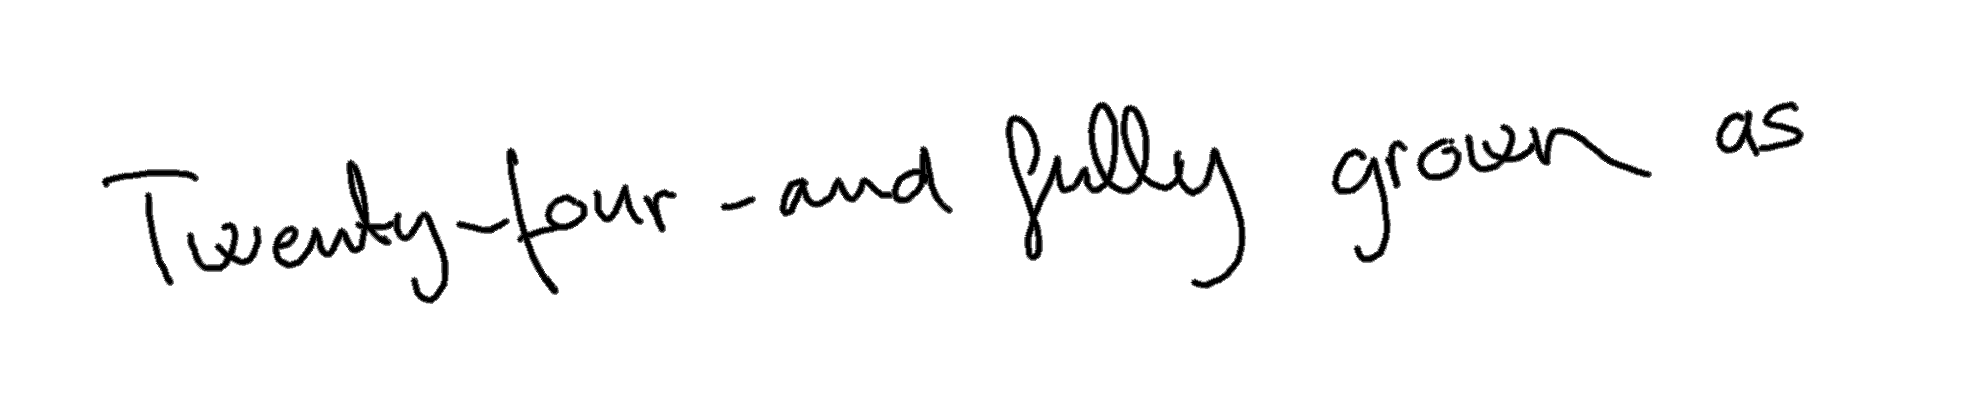 Twenty-four - and fully grown as